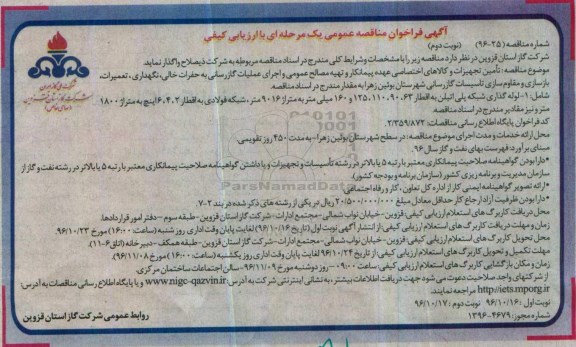 آگهی فراخوان مناقصه عمومی یک مرحله ای با ارزیابی کیفی
شماره مناقصه (۲۵-۹۶) (نوبت دوم)
شرکت گاز استان قزوین در نظر دارد مناقصه زیر را با مشخصات و شرایط کلی مندرج در اسناد مناقصه مربوطه به شرکت ذیصلاح واگذار نماید.
موضوع مناقصه: تأمین تجهیزات و کالاهای اختصاصی عهده پیمانکار و تهیه مصالح عمومی و اجرای عملیات گازرسانی به حفرات خالی، نگهداری، تعمیرات،
بازسازی و مقاوم سازی تأسیسات گازرسانی شهرستان بوئین زهرا به مقدار مندرج در اسناد مناقصه.
شامل: ۱- لوله گذاری شبکه پلی اتیلن به اقطار ۶۳، ۹۰، ۱۱۰، ۱۲۵ و ۱۶۰ میلی متر به متراژ ۹۰۱۶ متر، شبکه فولادی به اقطار ۲، ۴، ۶ اینچ به متراژ ۱۸۰۰
متر و نیز مقادیر مندرج در اسناد مناقصه.
کد فراخوان پایگاه اطلاع رسانی مناقصات: ۲/۳۵۹/۸۷۲
محل ارائه خدمات و مدت اجرای موضوع مناقصه: در سطح شهرستان بوئین زهرا - به مدت ۴۵۰ روز تقویمی.
مبنای برآورد: فهرست بهای نفت و گاز سال ۹۶.
•دارا بودن گواهینامه صلاحیت پیمانکاری معتبر با رتبه ۵ یا بالاتر در رشته تأسیسات و تجهیزات و یا داشتن گواهینامه صلاحیت پیمانکاری معتبر با رتبه ۵ یا بالاتر در رشته نفت و گاز از
سازمان مدیریت و برنامه ریزی کشور (سازمان برنامه و بودجه کشور).
•ارائه تصویر گواهینامه ایمنی کار از اداره کل تعاون، کار و رفاه اجتماعی.
•دارا بودن ظرفیت آزاد ارجاع کار حداقل معادل مبلغ ۲۰/۵۰۰/۰۰۰/۰۰۰ ریال در یکی از رشته های ذکر شده در بند ۲-۷.
محل دریافت کاربرگ های استعلام ارزیابی کیفی: قزوین- خیابان نواب شمالی- مجتمع ادارات- شرکت گاز استان قزوین- طبقه سوم- دفتر امور قراردادها.
زمان و مهلت دریافت کاربرگ های استعلام ارزیابی کیفی: از انتشار آگهی نوبت اول (تاریخ ۹۶/۱۰/۱۶) لغایت پایان وقت اداری روز شنبه (ساعت ۱۶:۰۰) مورخ ۹۶/۱۰/۲۳.
محل تحویل کاربرگ های استعلام ارزیابی کیفی: قزوین- خیابان نواب شمالی- مجتمع ادارات- شرکت گاز استان قزوین- طبقه همکف- دبیرخانه (اتاق ۶-۱۱).
مهلت تکمیل و تحویل کاربرگ های استعلام ارزیابی کیفی: از تاریخ ۹۶/۱۰/۲۴ لغایت پایان وقت اداری روز یکشنبه (ساعت ۱۶:۰۰) مورخ ۹۶/۱۱/۰۸.
زمان و مکان بازگشایی کاربرگ های استعلام ارزیابی کیفی: ساعت ۰۹:۰۰ - روز دوشنبه مورخ ۹۶/۱۱/۰۹- سالن اجتماعات ساختمان مرکزی.
از شرکتهای واجد صلاحیت دعوت می شود جهت دریافت اطلاعات بیشتر، به نشانی اینترنتی شرکت به آدرس: www.nigc-qazvin.ir و یا پایگاه اطلاع رسانی مناقصات به آدرس:
http://iets.mporg.ir مراجعه نمایند.
نوبت اول: ۹۶/۱۰/۱۶ نوبت دوم: ۹۶/۱۰/۱۷
شماره مجوز: ۴۶۷۹-۱۳۹۶
روابط عمومی شرکت گاز استان قزوین